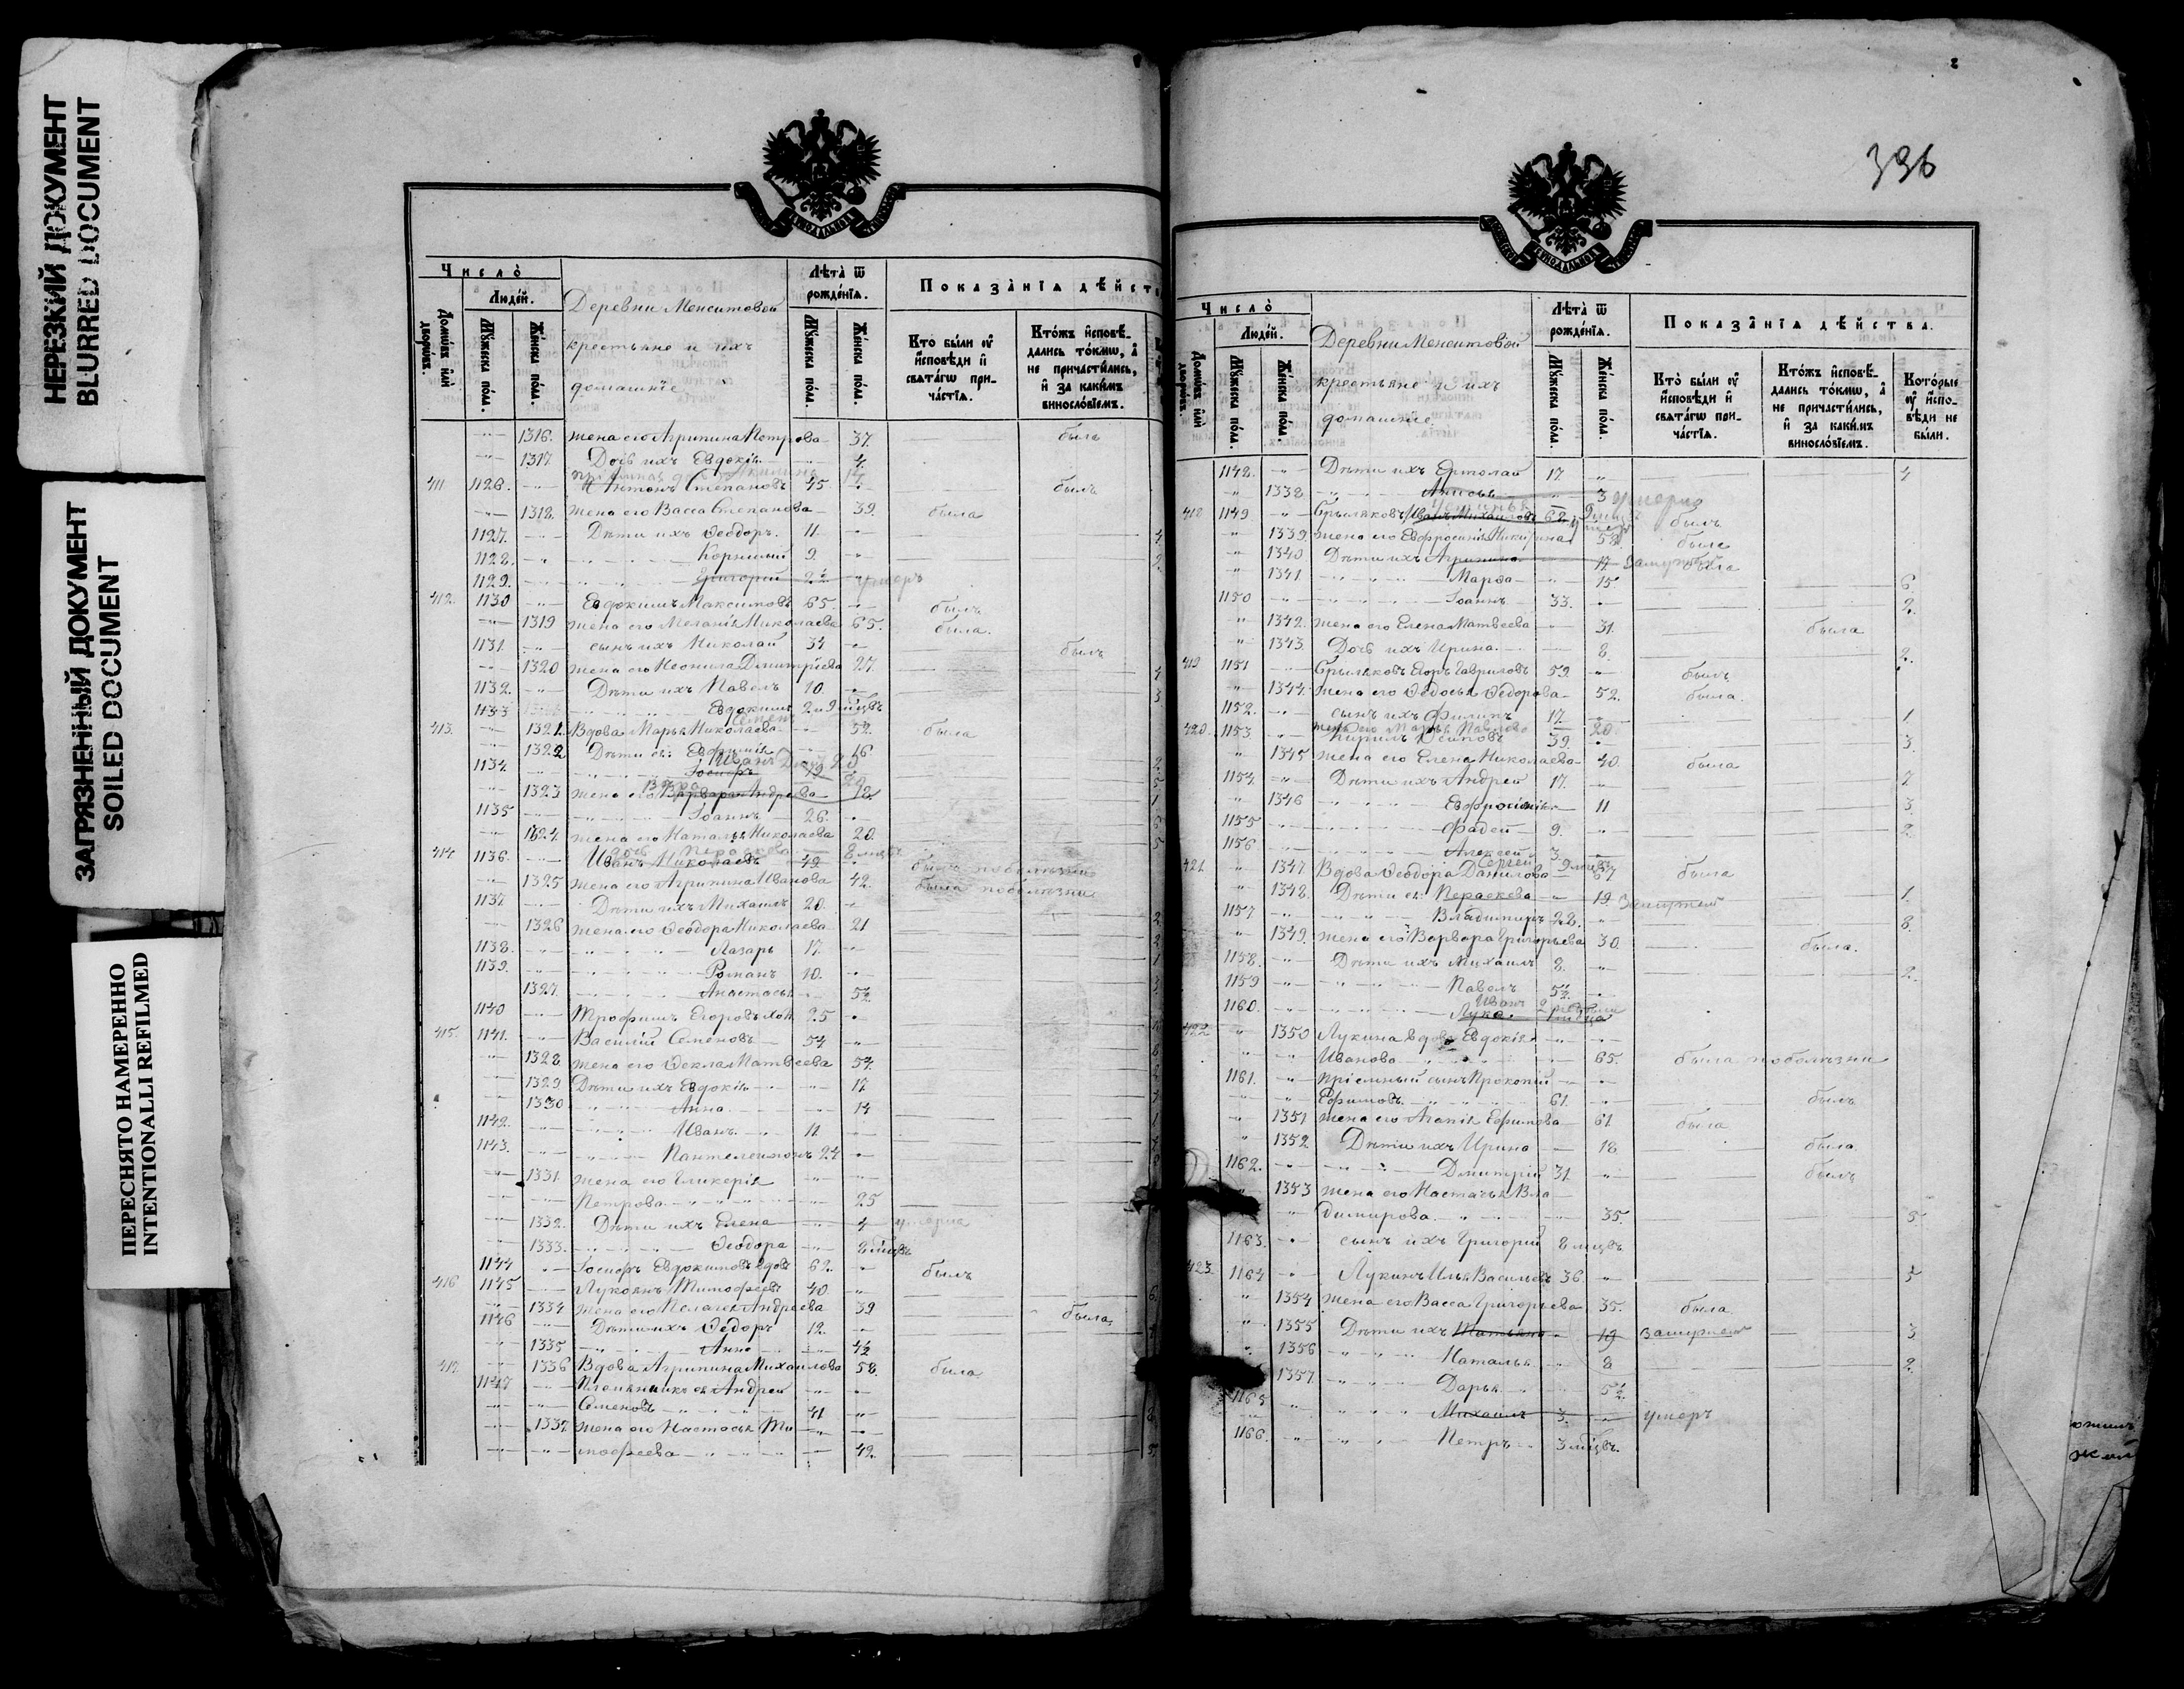 НЕРЕЗКИЙ ДОКУМЕНТ
BLURRED DOCUMENT
ЗАГРЯЗНЕННЫЙ ДОКУМЕНТ
SOILED DOCUMENT
ПЕРЕСНЯТО НАМЕРЕННО
INTENTIONALLI REFILMED
Число̀
Людей.
Домѡвъ или дворѡвъ.
Мꙋжеска пола.
Женска пола.
Деревни Менситовой
крестьяне и ихъ
домашніе
Лѣта ѿ рожденїѧ.
Мꙋжеска пола.
Женска пола.
Показанїѧ дѣйств
Кто были ᲂу҆ исповѣди и свѧтагѡ причастїѧ.
Ктожъ исповѣдались токмѡ, а не причастились, и за какимъ винословїемъ.
1316. жена его Агрипина Петрова 37. была
1317 Дочь ихъ Евдокія 4.
411 1126. Антонъ Степановъ 45 былъ
1318. жена его Васса Степанова 39. была
1127. Дѣти ихъ Ѳеодоръ. 11.
1128. 9.
1129. Григорій 2½ умеръ
412. 1130 Евдокимъ Максимовъ 65. былъ
1319 жена его Меланія Николаева 65. была.
1131. сынъ ихъ Николай 34 былъ
1320 жена его Неонила Дмитріева 27.
1132. Дѣти ихъ Павелъ 10.
1133 Евдокимъ 2 и 9 мцвъ
413. 1321. Вдова Марья Николаева 52. была
1322 Дѣти ея: Евфимія 16
1134. Іосифъ 19
1323 жена его Варвара Андреева 18.
1135 Іоаннъ 26.
1324. жена его Наталья Николаева 20.
дочь Параскева 8 мцвъ
414 1136. Иванъ Николаевъ 49. былъ по болѣзни
1325 жена его Агрипина Иванова 42. была по болѣзни
1137 Дѣти ихъ Михаилъ 20.
1326 жена его Ѳеодора Николаева 21
1138. Лазарь 17.
1139. Романъ 10.
1327. Анастасья 5½
1140 Трофимъ Егоровъ хол. 25
415. 1141. Василій Семеновъ 54
1328. жена его Ѳекла Матвеева 54.
1329 Дѣти ихъ Евдокія 17
1330 Анна 14
1142. Иванъ. 11.
1143. Пантелеимонъ 24
1331. жена его Гликерія
Петрова 25
1332. Дѣти ихъ Елена 4 умерла
1333. Ѳеодора 2 мцвъ
1144 Іосифъ Евдокимовъ вдов 62. былъ
416 1145 Лукоянъ Тимофеевъ 40
1334 жена его Пелагея Андреева 39 была
1146 Дѣти ихъ Ѳедоръ 12.
1335 Анна 4½
417 1336 Вдова Агрипина Михаилова 58. была
1147 Племянникъ ея Андрей
Семеновъ 41
1337. жена его Настасья Ти
мофеева 42.
396
Число̀
Людей.
Домѡвъ или дворѡвъ.
Мꙋжеска пола.
Женска пола.
Деревни Менситовой
крестьяне и ихъ
домашніе.
Лѣта ѿ рожденїѧ.
Мꙋжеска пола.
Женска пола.
Показанїѧ дѣйства.
Кто были ᲂу҆ исповѣди и свѧтагѡ причастїѧ.
Ктожъ исповѣдались токмѡ, а не причастились, и за какимъ винословїемъ.
Которые ᲂу҆ исповѣди не были.
1148. Дѣти ихъ Ермолай 17 4
1338 Анисья 3 умерла
418 1149 Брыляковъ Иванъ Михаиловъ 62. былъ
1339. жена его Евфросинія Никифина 58. была
1340 Дѣти ихъ Агрипина 17 Замужемъ была
1341 Марѳа 15. 6
1150 Іоаннъ 33. 2.
1342. жена его Елена Матвеева 31. была
1343. Дочь ихъ Ирина 8. 2.
419 1151 Брыляковъ Егоръ Гавриловъ 59. былъ
1344. жена его Ѳедосья Ѳедорова 52. была.
1152. сынъ ихъ Филипъ 17. 1.
жена его Марья Павлова 20
420. 1153 Кирилъ Осиповъ 39. 3.
1345 жена его Елена Николаева 40. была
1154. Дѣти ихъ Андрей 17. 7
1346 Евфросинія 11 3.
1155 Фадей 9. 2.
1156 Алексей 3.
Сергей 9 мцвъ
421. 1347 Вдова Ѳеодора Данилова 67 была
1348. Дѣти ея: Пераскева 19. Замужемъ 1.
1157 Владимиръ 28. 8.
1349. жена его Варвара Григорьева 30. была.
1158. Дѣти ихъ Михаилъ 8. 2.
1159 Павелъ 5½.
Иванъ
1160. Лука
422 1350 Лукина вдова Евдокія
Иванова 65. была по болѣзни
1161. Пріемный сынъ Прокопій
Ефимовъ. 61. былъ
1351 жена его Агапія Ефимова 61 была
1352 Дѣти ихъ Ирина 18 была.
1162. Дмитрій 31. былъ
1353 жена его Настасья Вла
димирова 35. 5.
1163. сынъ ихъ Григорій 8 мцвъ
423. 1164 Лукинъ Илья Васильевъ 36. 5
1354 жена его Васса Григорьева 35. была
1355 Дѣти ихъ Татьяна 19 замужемъ 3
1356 Наталья 8 2.
1357. Дарья 5½
1165 Михаилъ 3. умеръ
1166. Петръ 3 мцвъ.